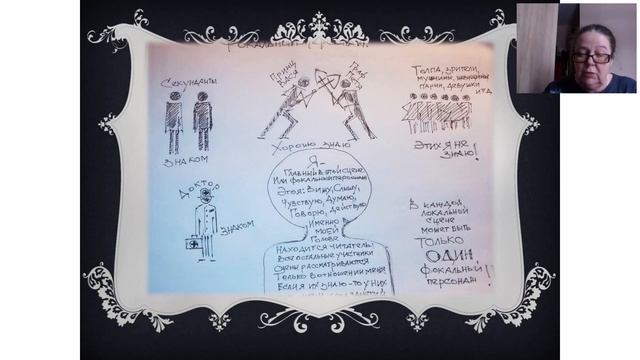 ФОКАЛЬНЫЙ
СЕКУНДАНТЫ
ЗНАКОМ
ПРИНЦ
ВАСЯ
ГРАФ
ХОРОШО ЗНАЮ
ТОЛПА, ЗРИТЕЛИ,
МУЖЧИНЫ, ЖЕНЩИНЫ
ПАРНИ, ДЕВУШКИ
И Т.Д
ЭТИХ Я НЕ
ЗНАЮ!
ДОКТОР
ЗНАКОМ
Я-
ГЛАВНЫЙ В ЭТОЙ СЦЕНЕ,
ИЛИ ФОКАЛЬНЫЙ ПЕРСОНАЖ
ЭТО Я: ВИЖУ, СЛЫШУ,
ЧУВСТВУЮ, ДУМАЮ,
ГОВОРЮ, ДЕЙСТВУЮ
ИМЕННО В
МОЕЙ
ГОЛОВЕ
НАХОДИТСЯ ЧИТАТЕЛЬ!
ВСЕ ОСТАЛЬНЫЕ УЧАСТНИКИ
СЦЕНЫ РАССМАТРИВАЮТСЯ
ТОЛЬКО В ОТНОШЕНИИ МЕНЯ
ЕСЛИ Я ИХ ЗНАЮ-ТО У НИХ
В КАЖДОЙ
ЛОКАЛЬНОЙ
СЦЕНЕ
МОЖЕТ БЫТЬ
ТОЛЬКО
ОДИН
ФОКАЛЬНЫЙ
ПЕРСОНАЖ!!